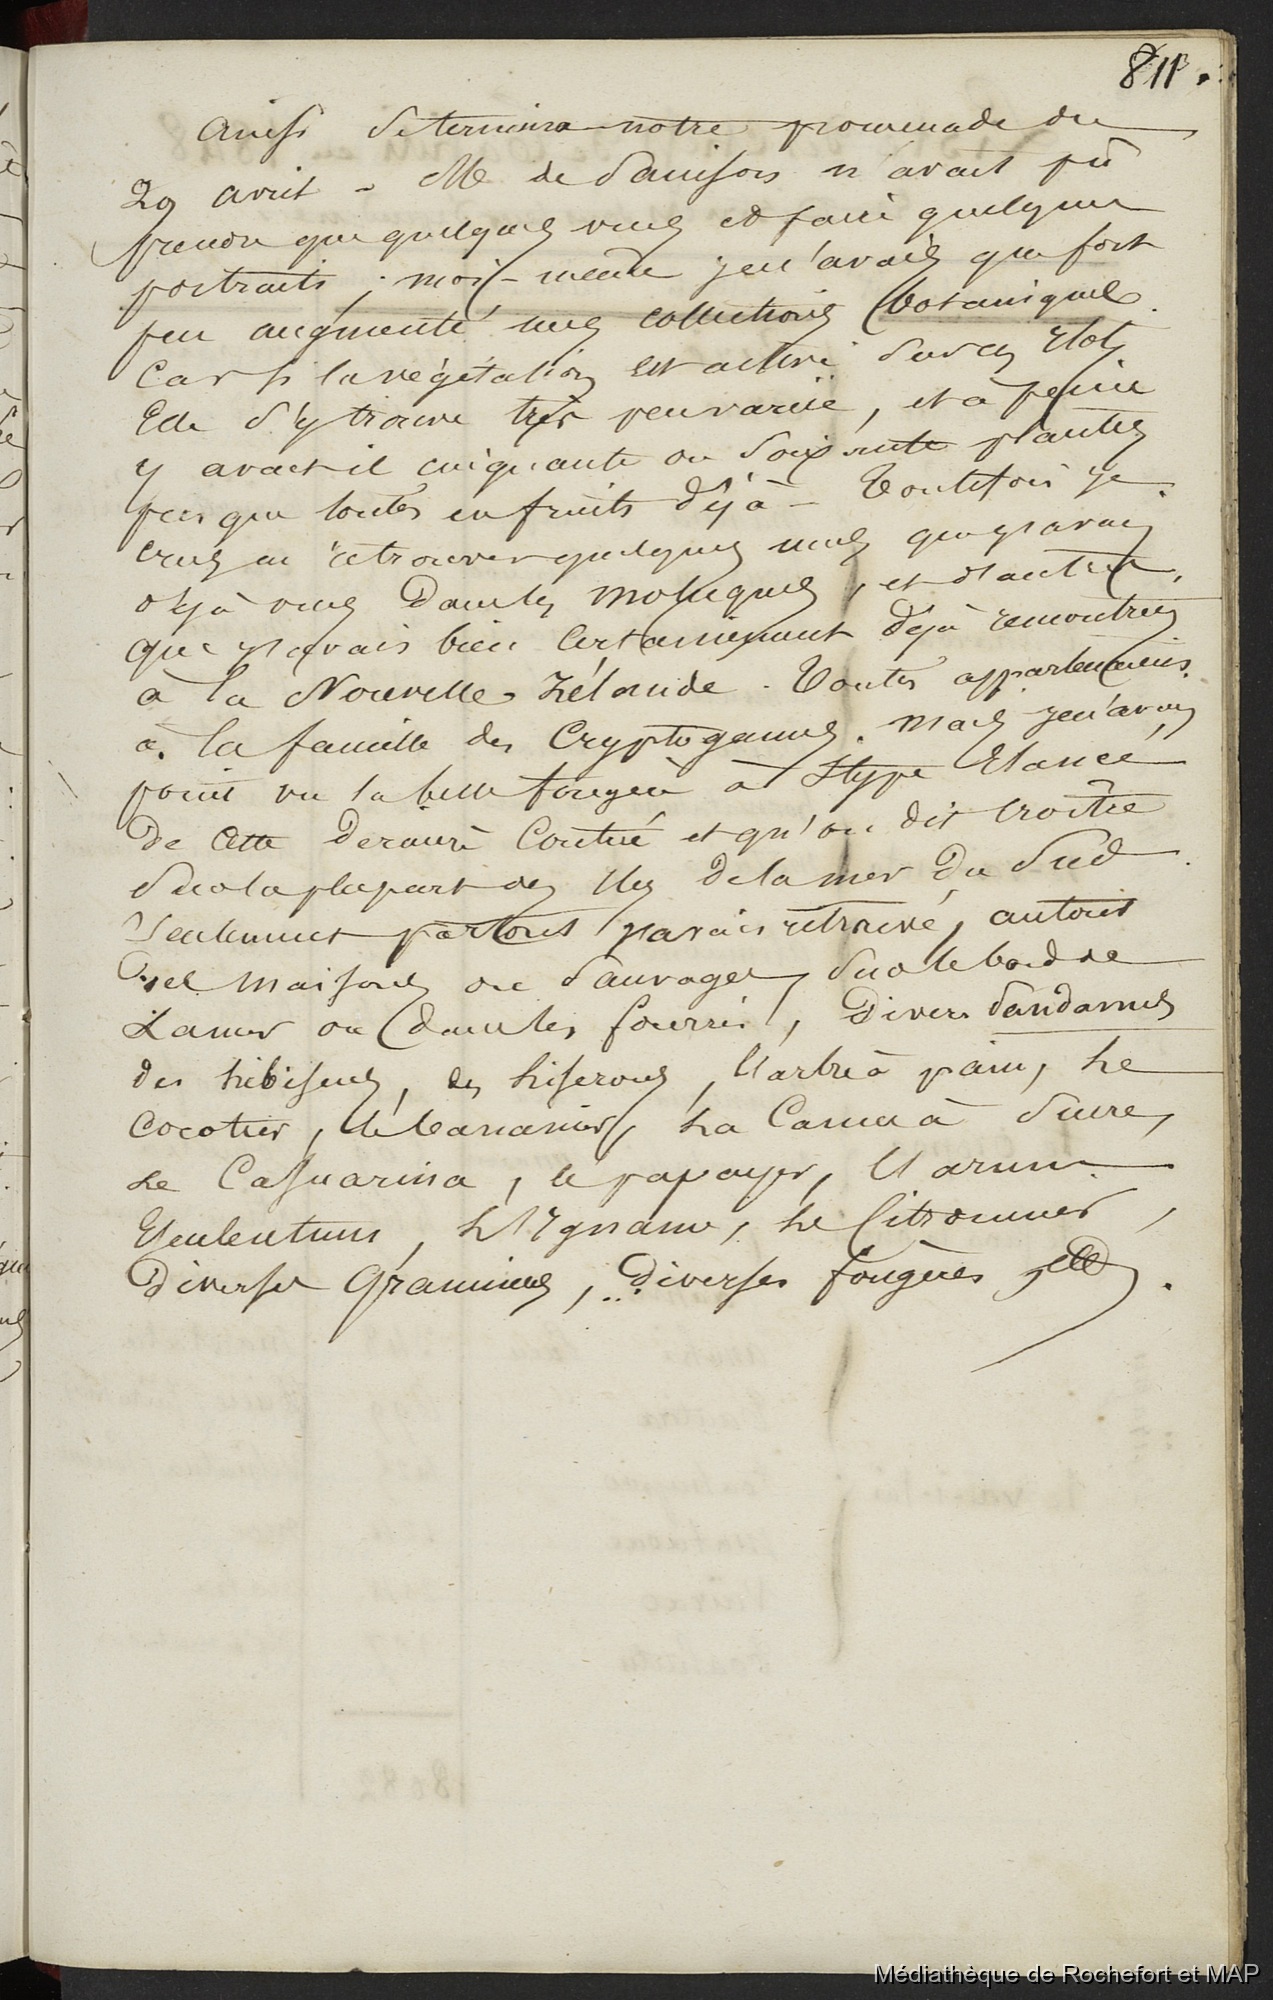 811.
Ainsi se termina notre promenade du
29 avril - Mr de Sainson n'avait pû
prendre que quelques vues et faire quelques
portraits ; moi-même je n'avais que fort
peu augmenté mes collections botaniques.
Car si la végétation est active sur ces ilots,
Elle s'y trouve très peu variée, et à peine
y avait-il cinquante ou soixante plantes
presque toutes en fruits déjà - Toutefois je
crus en retrouver quelques unes que j'avais
déjà vues Dans les Moluques, et d'autres,
que j'avais bien certainement déjà rencontrées
à la Nouvelle Zélande. Toutes appartenaient
à la famille des Cryptogames. Mais je n'avais
point vu la belle fougère à stype Elancé
De cette Dernière Contrée et qu'on dit croître
sur la plupart des Iles De la mer Du Sud.
Seulement partout j'avais retrouvé, autour
Des maisons de sauvages, sur le bord de
La mer ou Dans les fourrés, Divers Pandanus
des hibiscus, des liserons, L'arbre à pain, Le
cocotier, le bananier, La Canne à sucre,
Le Casuarina, le papayer, L'arum
Esculentum, L'Igname, Le Citronnier,
Diverses Graminées, Diverses fougères, etc.
Médiathèque de Rochefort et MAP